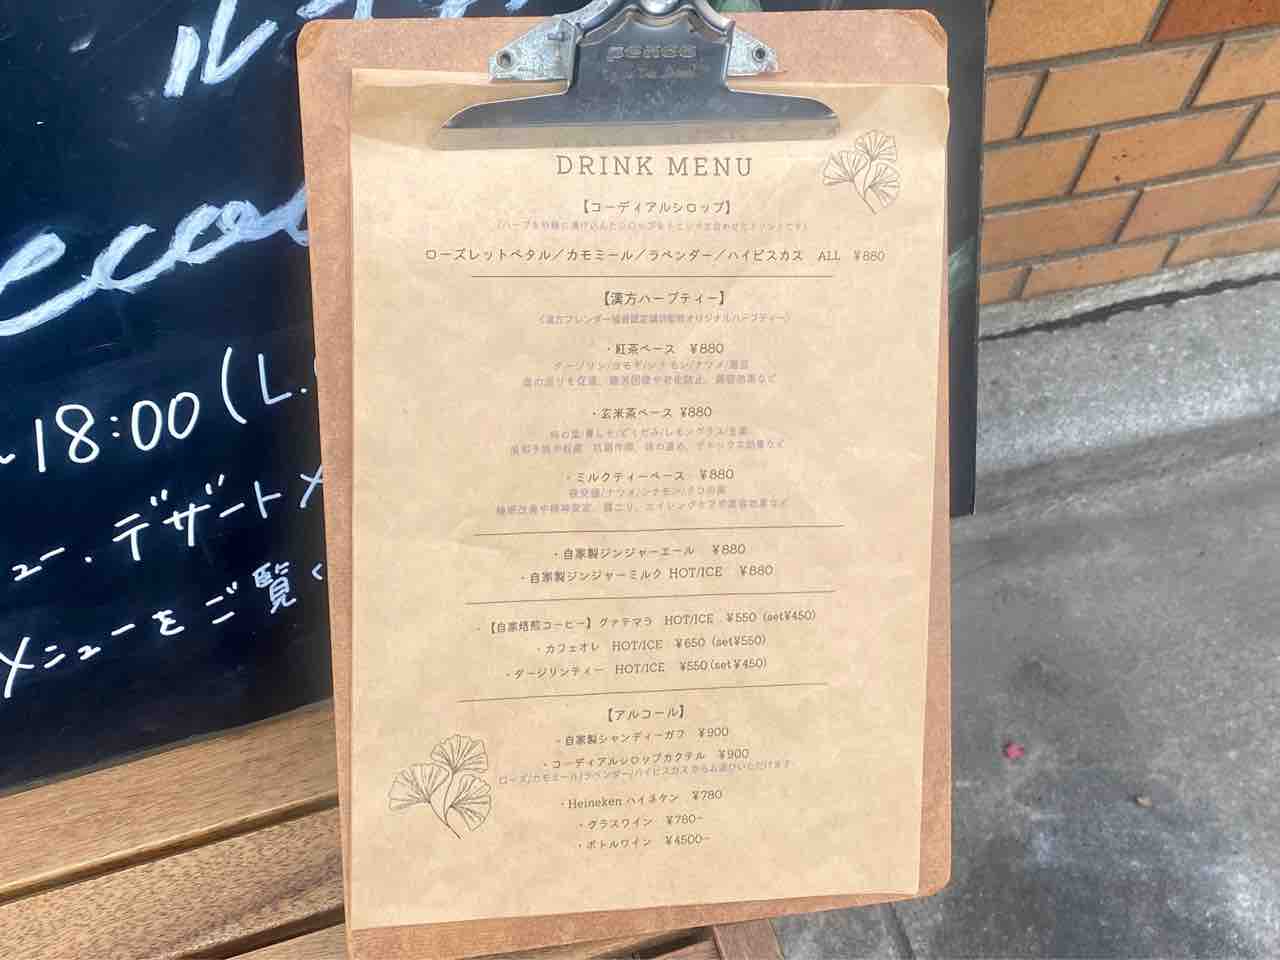 DRINK MENU
【コーディアルシロップ】
ローズレットペタル／カモミール／ラベンダー／ハイビスカス ALL ¥880
【漢方ハーブティー】
・紅茶ベース ¥880
血の巡りを促進、疲労回復や老化防止、美容効果など
・玄米茶ベース ¥880
・ミルクティーベース ¥880
・自家製ジンジャーエール ¥880
・自家製ジンジャーミルク HOT/ICE ¥880
・【自家焙煎コーヒー】グァテマラ HOT/ICE ¥550 (set¥450)
・カフェオレ HOT/ICE ¥650 (set¥550)
・ダージリンティー HOT/ICE ¥550 (set¥450)
【アルコール】
・自家製シャンディーガフ ¥900
・コーディアルシロップカクテル ¥900
ローズ/カモミール/ラベンダー/ハイビスカスからお選びいただけます
・Heineken ハイネケン ¥780
・グラスワイン ¥780~
・ボトルワイン ¥4500~
~18:00 (L.
ュー、デザートメ
メニューをご覧く